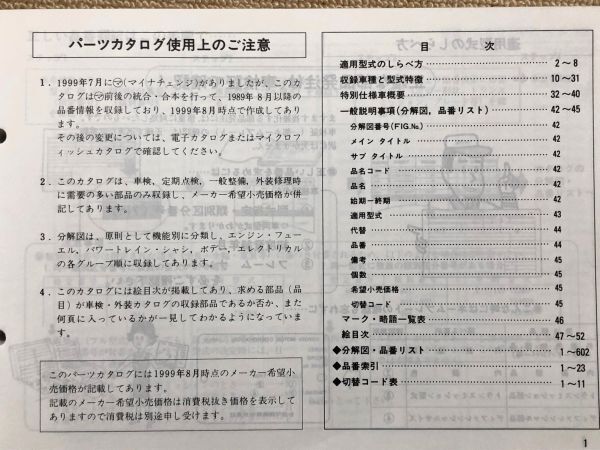 パーツカタログ使用上のご注意
1. 1999年7月に㋮(マイナチェンジ)がありましたが、このカ
タログは㋮前後の統合・合本を行って、1989年8月以降の
品番情報を収録しており、1999年8月時点で作成してあり
ます。
その後の変更については、電子カタログまたはマイクロフ
ィッシュカタログで確認してください。
2. このカタログは、車検、定期点検、一般整備、外装修理時
に需要の多い部品のみ収録し、メーカー希望小売価格が併
記してあります。
3. 分解図は、原則として機能別に分類し、エンジン・フュー
エル、パワートレイン・シャシ、ボデー、エレクトリカルの
の各グループ順に収録してあります。
4. このカタログには絵目次が掲載してあり、求める部品(品
目)が車検・外装カタログの収録部品であるか否か、また
何頁に入っているかが一見してわかるようになっていま
す。
このパーツカタログには1999年8月時点のメーカー希望小
売価格が記載してあります。
記載のメーカー希望小売価格は消費税抜き価格を表示して
ありますので消費税は別途申し受けます。
目 次
適用型式のしらべ方 2～8
収録車種と型式特徴 10～31
特別仕様車概要 32～40
一般説明事項(分解図，品番リスト) 42～45
分解図番号(FIG.No.) 42
メイン タイトル 42
サブ タイトル 42
品名コード 42
品名 42
始期ー終期 42
適用型式 43
代替 44
品番 44
備考 45
個数 45
希望小売価格 45
切替コード 45
マーク・略語一覧表 46
絵目次 47～52
◆分解図・品番リスト 1～602
◆品番索引 1～23
◆切替コード表 1～11
1